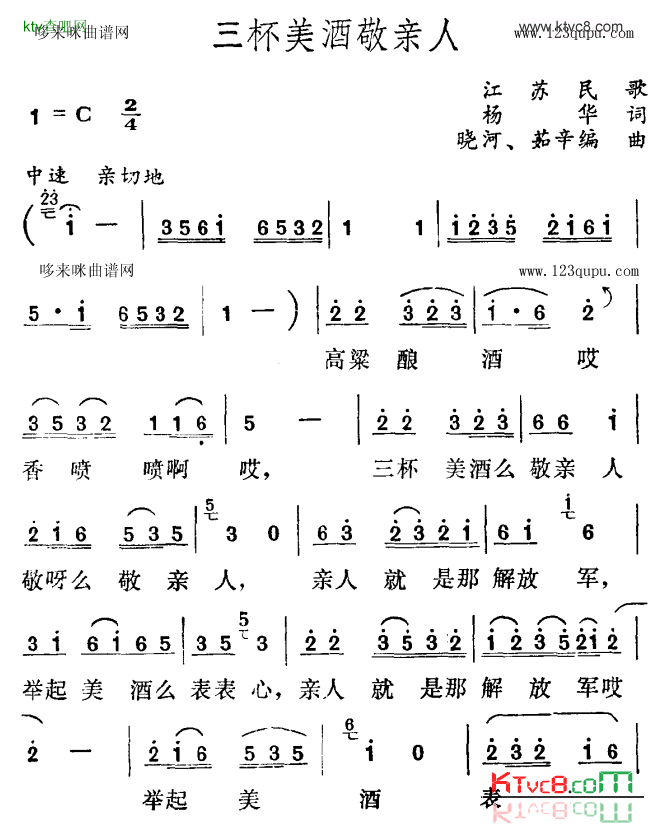 ktv查吧网 哆来咪曲谱网 三杯美酒敬亲人 www.ktvc8.com www.123qupu.com
江苏民歌
1=C 2/4 杨华词
晓河、茹辛编曲
中速 亲切地
(2̇3̇ 1̇ — | 3561̇ 6532 | 1 1 | 1̇2̇3̇5̇ 2̇1̇61̇ |
哆来咪曲谱网 www.123qupu.com
5·1̇ 6532 | 1 — ) | 2̇2̇ 3̇2̇3̇ | 1̇·6 2̇ |
高粱酿酒哎
3532 116̣ | 5 — | 2̇2̇ 3̇2̇3̇ | 66 1̇ |
香喷喷啊哎，三杯美酒么敬亲人
2̇1̇6 535 | 5 3 0 | 63̇ 2̇3̇2̇1̇ | 61̇ 1̇ 6 |
敬呀么敬亲人，亲人就是那解放军，
31̇ 61̇65 | 35 5 3 | 2̇2̇ 3̇2̇3̇ | 1̇2̇3̇5̇ 2̇1̇2̇ |
举起美酒么表表心，亲人就是那解放军哎
2̇ — | 2̇1̇6 535 | 6 1̇ 0 | 2̇2̇3̇5̇ 2̇1̇6 |
举起美酒表
KTvc8.com